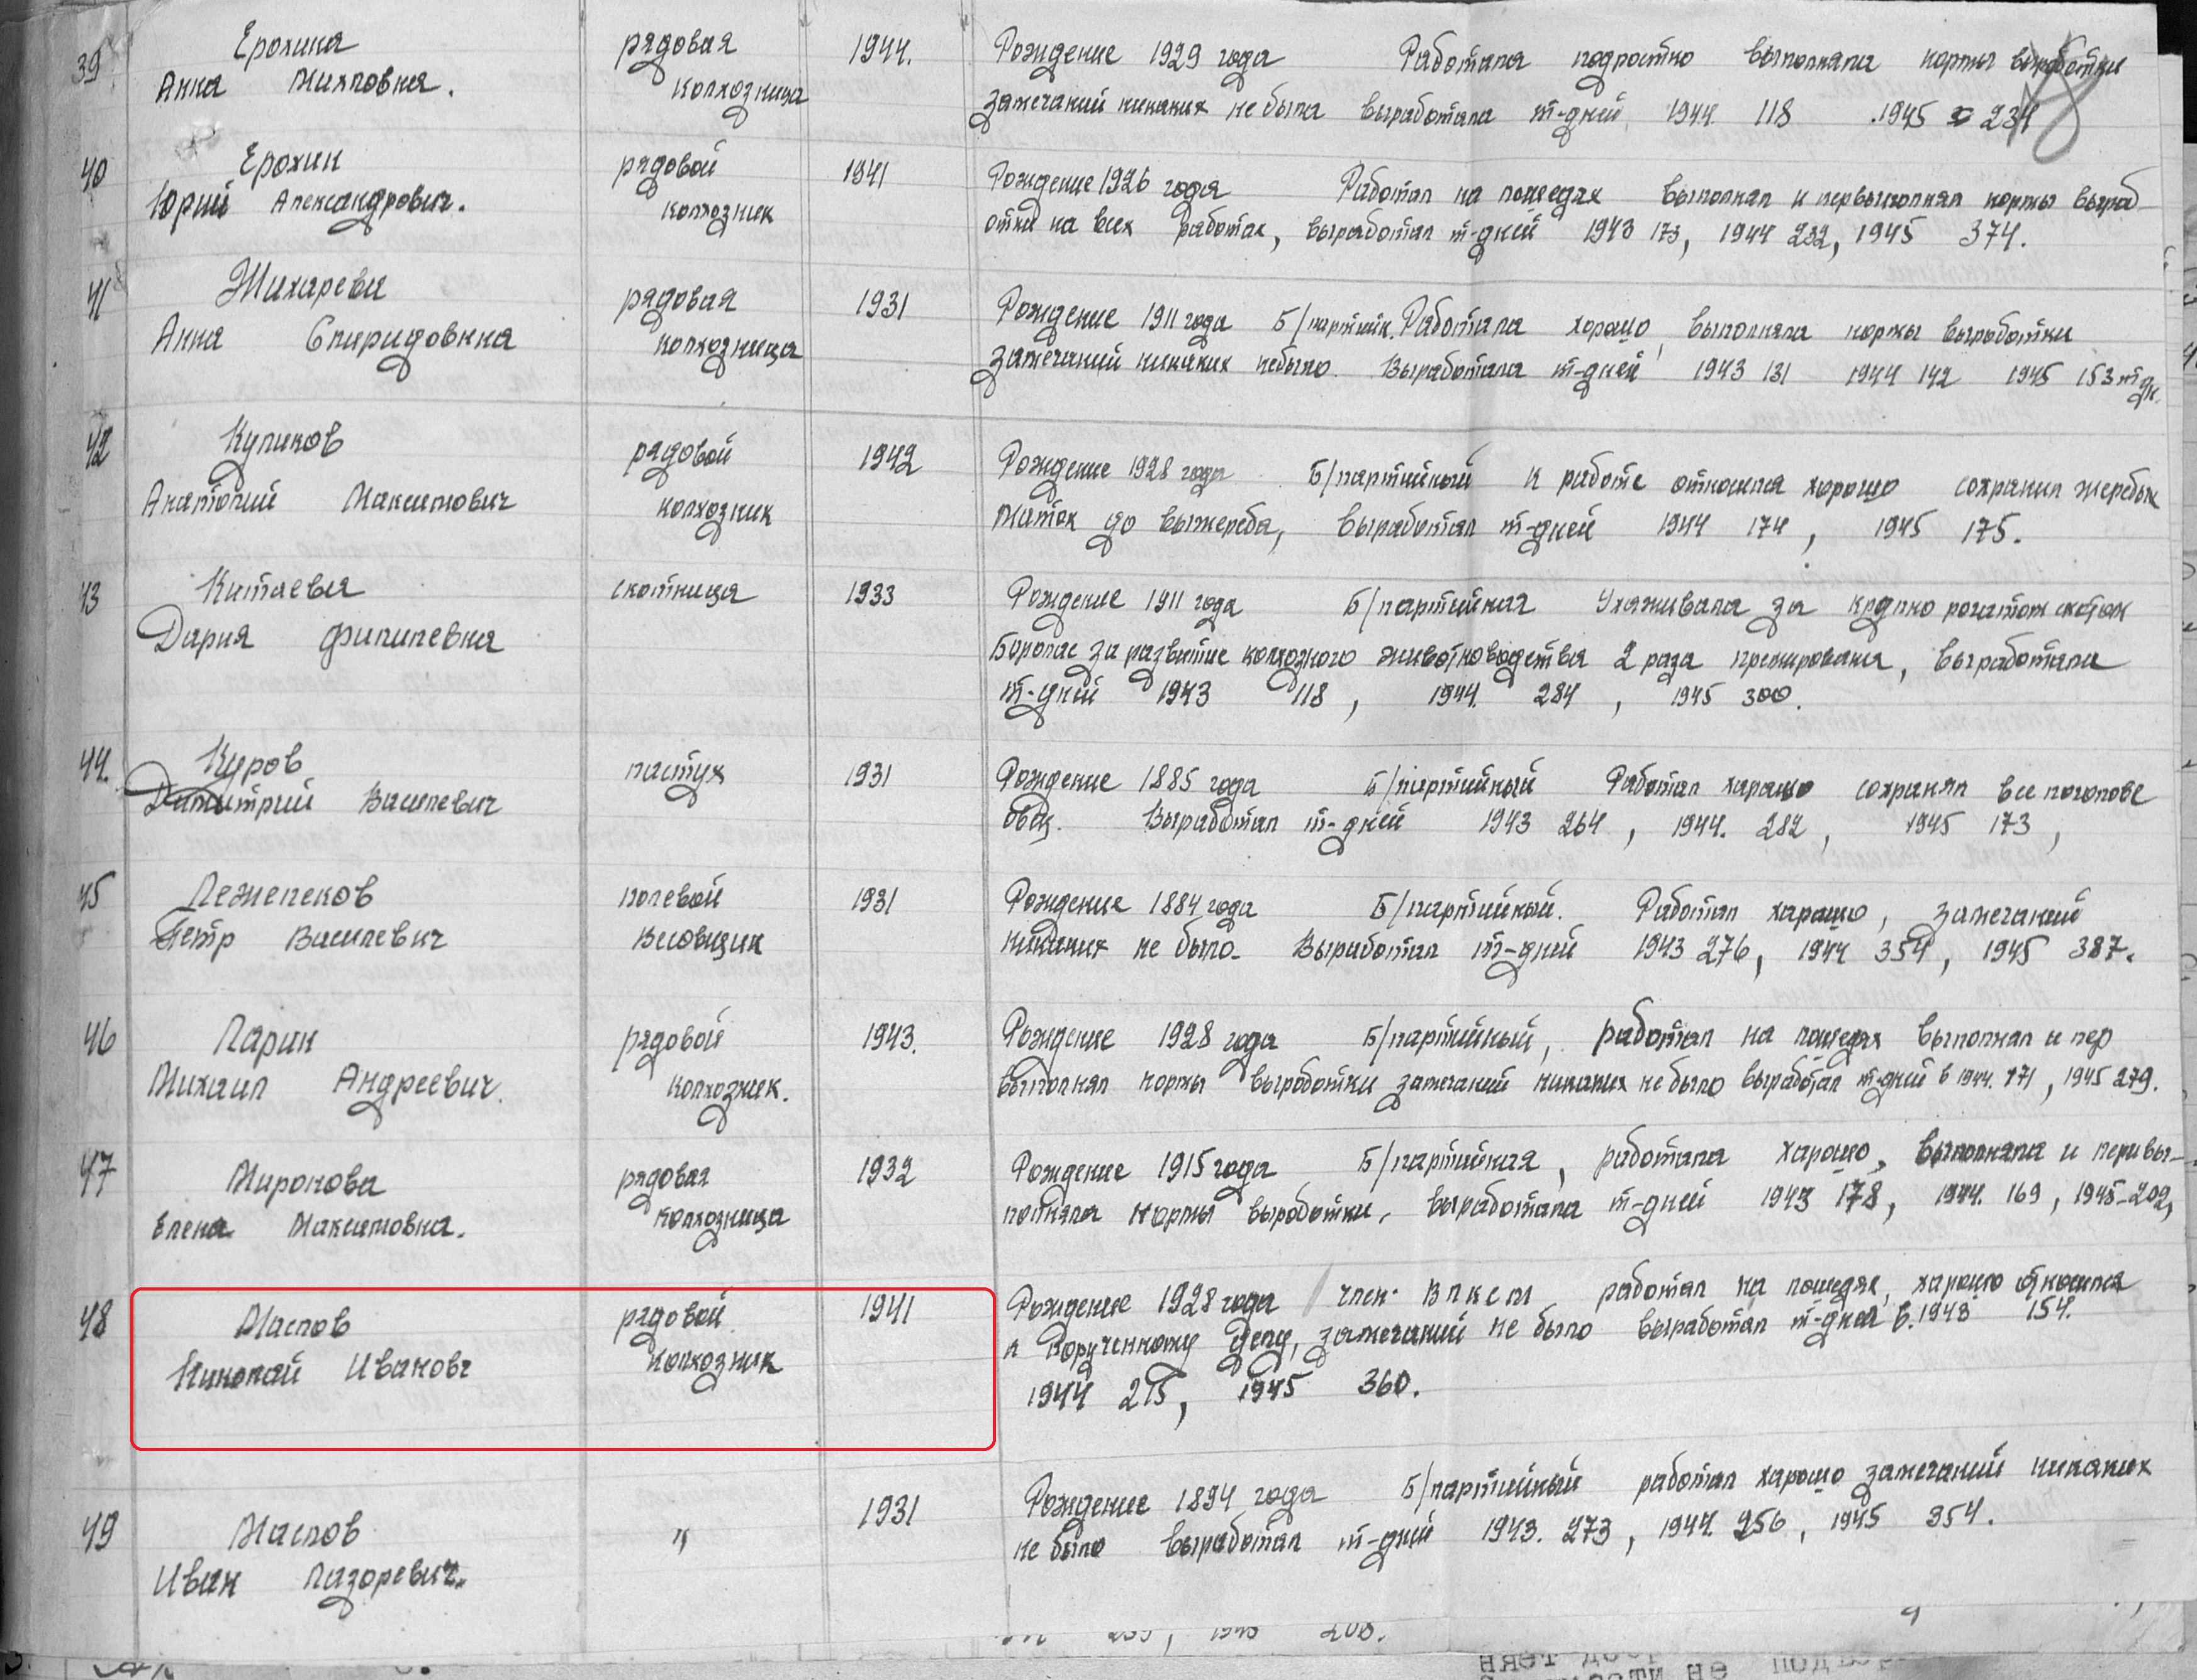 39 Ерохина рядовая 1944. Рождение 1929 года Работала подростко выполняла нормы выработки
Анна колхозница замечаний никаких не была выработала т-дней 1944 118 .1945 234
40 Ерохин рядовой 1941 Рождение 1926 года Работал на лошедях выполнял и первыполнял нормы выраб
Юрий Александрович. колхозник отки на всех работах, выработал т-дней 1943 173, 1944 232, 1945 374.
41 Жихарева рядовая 1931 Рождение 1911 года Б/партийн. Работала хорошо, выполняла нормы выработки
Анна Спиридовнна колхозница замечаний никаких небыло. Выработала т-дней 1943 131 1944 142 1945 153 т дн.
42 Куликов рядовой 1942 Рождение 1928 года Б/партийный К работе относился хорошо сохранил жеребых
Анатолий Максимович колхозник маток до выжереба, выработал т-дней 1944 174, 1945 175.
43 Китаева скотница 1933 Рождение 1911 года Б/партийная Ухаживала за крупно рогатом скотом
Дария Филипевна Боролас за развитие колхозного животноводства 2 раза премирована, выработала
т-дней 1943 118, 1944. 284, 1945 300.
44. Куров пастух 1931 Рождение 1885 года Б/партийный Работал харашо сохранял все поголове
Димитрий Василевич овец. Выработал т-дней 1943 264, 1944. 282, 1945 173,
45 Лежепеков полевой 1931 Рождение 1884 года Б/партийный. Работал харашо, замечаний
Петр Василевич весовщик никаких не было. Выработал т-дней 1943 276, 1944 354, 1945 387.
46 Ларин рядовой 1943. Рождение 1928 года Б/партийный, работал на лошедях выполнял и пер
Михаил Андреевич. колхозник. выполнял нормы выработки замечаний никаких не было выработал т-дней в 1944. 171, 1945 279.
47 Миронова рядовая 1932 Рождение 1915 года Б/партийная, работала харашо, выполняла и перивы-
Елена Максимовна. колхозница полняла нормы выработки, выработала т-дней 1943 178, 1944. 169, 1945-202,
48 Маслов рядовой 1941 Рождение 1928 года член ВЛКСМ работал на лошедях, харашо относился
Николай Иванович колхозник к порученному делу, замечаний не было выработал т-дней в.1943 154.
1944 215, 1945 360.
49 Маслов " 1931 Рождение 1894 года Б/партийный работал харашо замечаний никаких
Иван Лазоревич. не было выработал т-дней 1943. 273, 1944. 256, 1945 354.